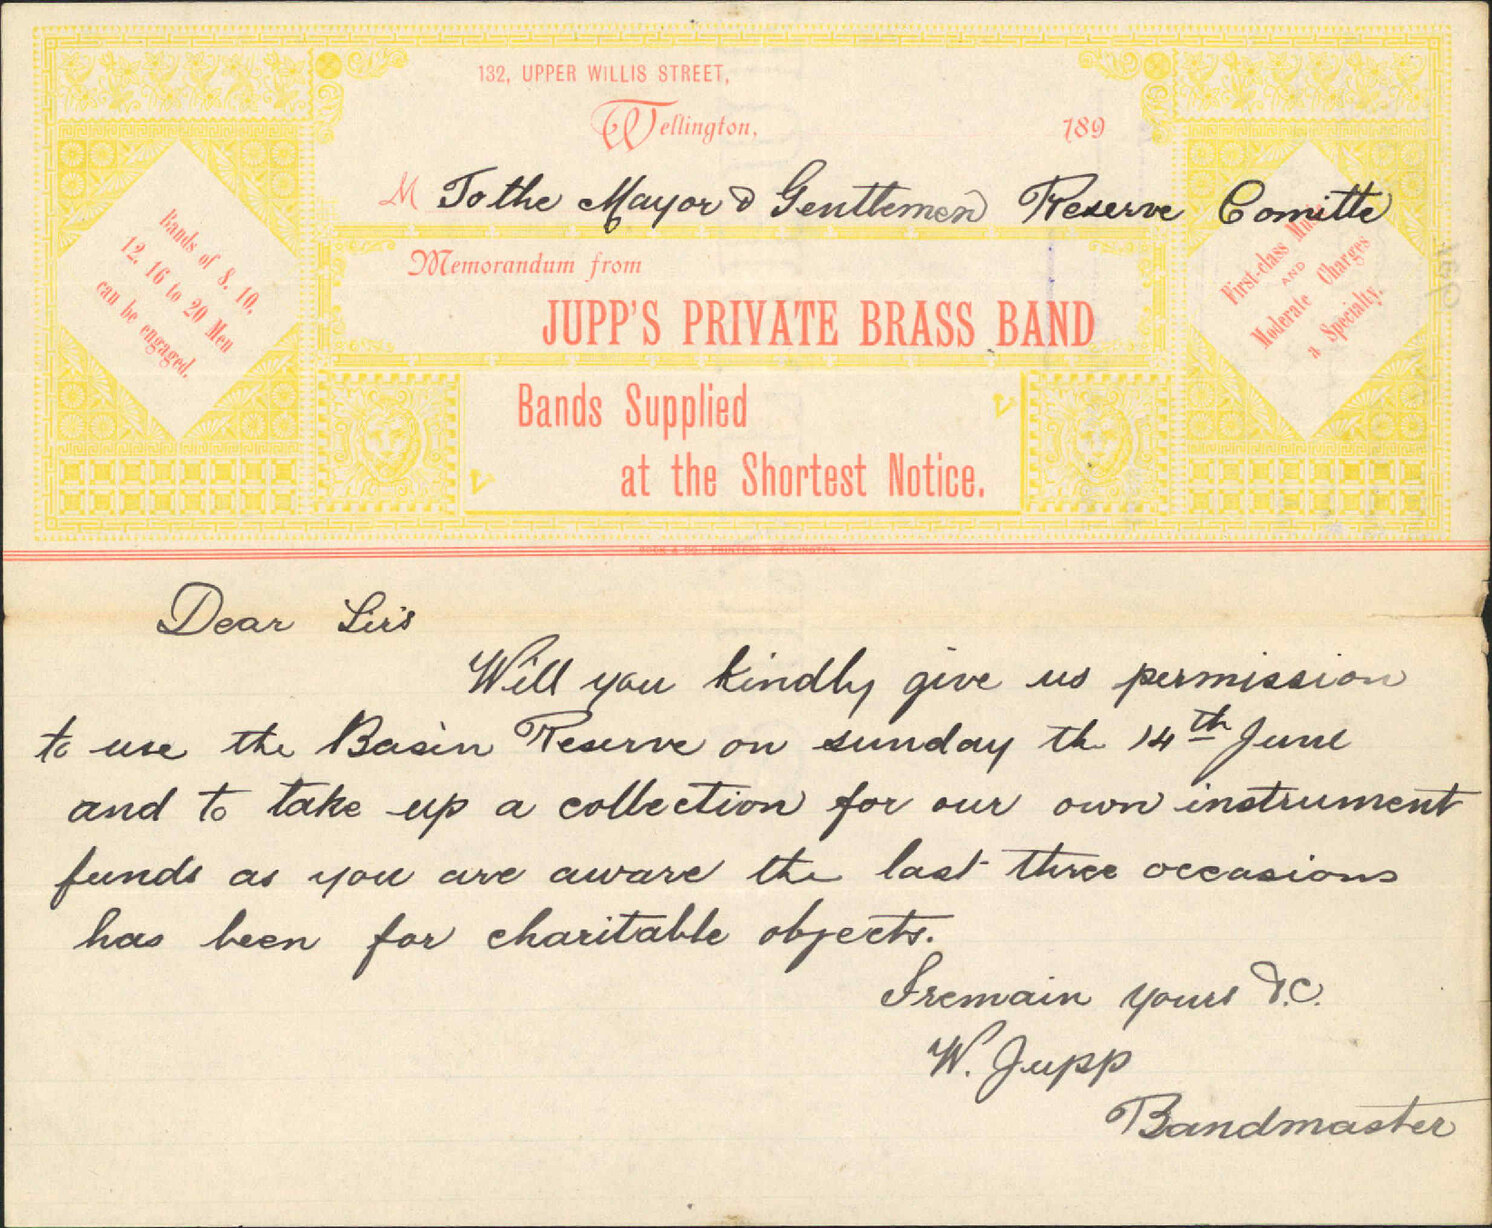 132, UPPER WILLIS STREET,
Wellington, 189
M To the Mayor & Gentlemen Reserve Comitte
Memorandum from
JUPP'S PRIVATE BRASS BAND
Bands Supplied
at the Shortest Notice.
Bands of 8, 10,
12, 16 to 20 Men
can be engaged.
First-class
AND
Moderate Charges
a Specialty.
& CO., PRINTERS, WELLINGTON
Dear Sirs
Will you kindly give us permission
to use the Basin Reserve on sunday the 14th June
and to take up a collection for our own instrument
funds as you are aware the last three occasions
has been for charitable objects.
I remain yours &.C.
W. Jupp
Bandmaster